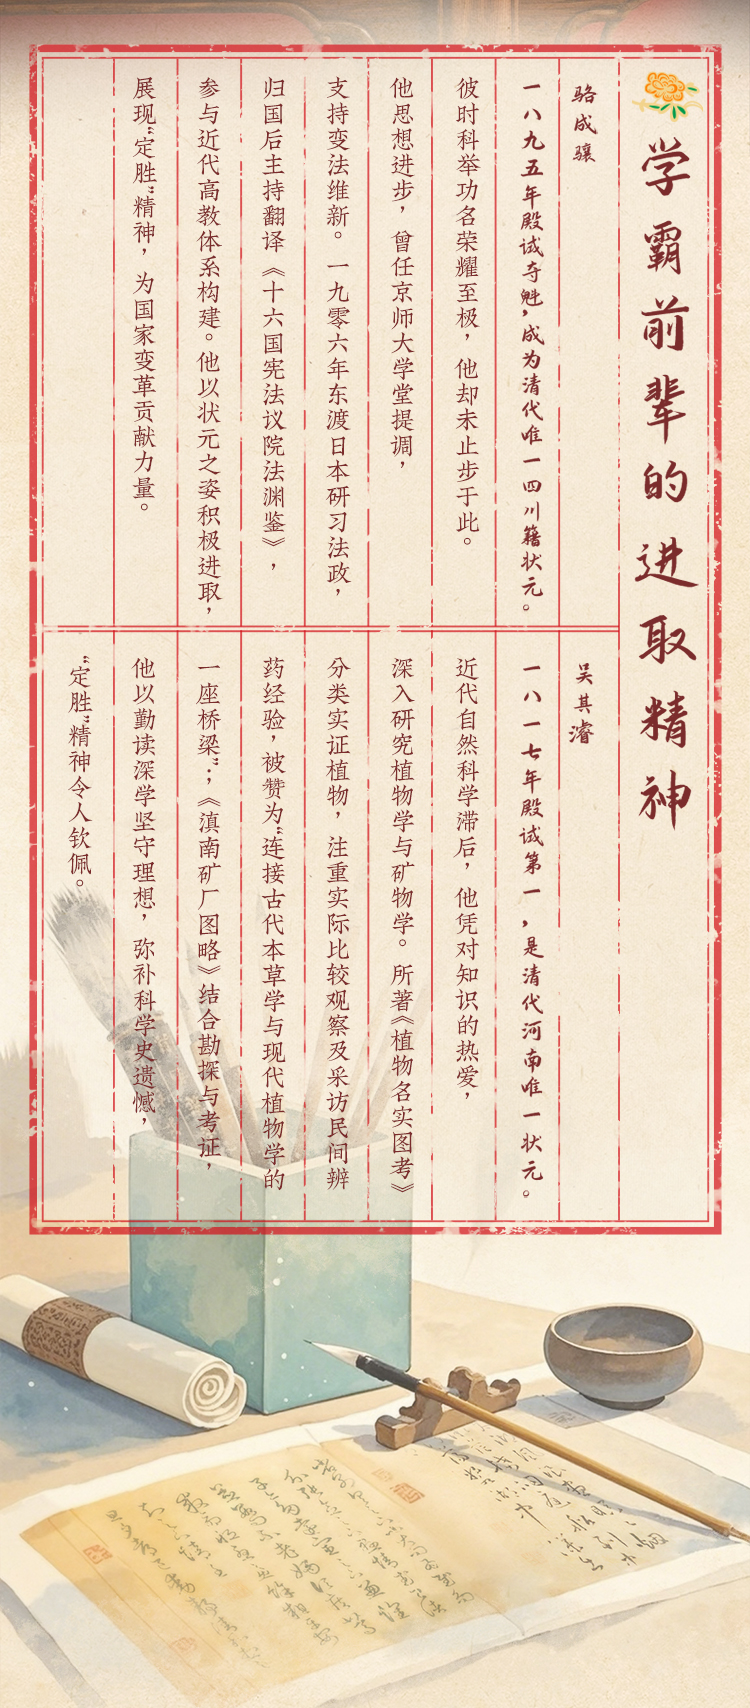 学霸前辈的进取精神
骆成骧
一八九五年殿试夺魁，成为清代唯一四川籍状元。
彼时科举功名荣耀至极，他却未止步于此。
他思想进步，曾任京师大学堂提调，
支持变法维新。一九零六年东渡日本研习法政，
归国后主持翻译《十六国宪法议院法渊鉴》，
参与近代高教体系构建。他以状元之姿积极进取，
展现“定胜”精神，为国家变革贡献力量。
吴其濬
一八一七年殿试第一，是清代河南唯一状元。
近代自然科学滞后，他凭对知识的热爱，
深入研究植物学与矿物学。所著《植物名实图考》
分类实证植物，注重实际比较观察及采访民间辨
药经验，被赞为“连接古代本草学与现代植物学的
一座桥梁”；《滇南矿厂图略》结合勘探与考证，
他以勤读深学坚守理想，弥补科学史遗憾，
“定胜”精神令人钦佩。